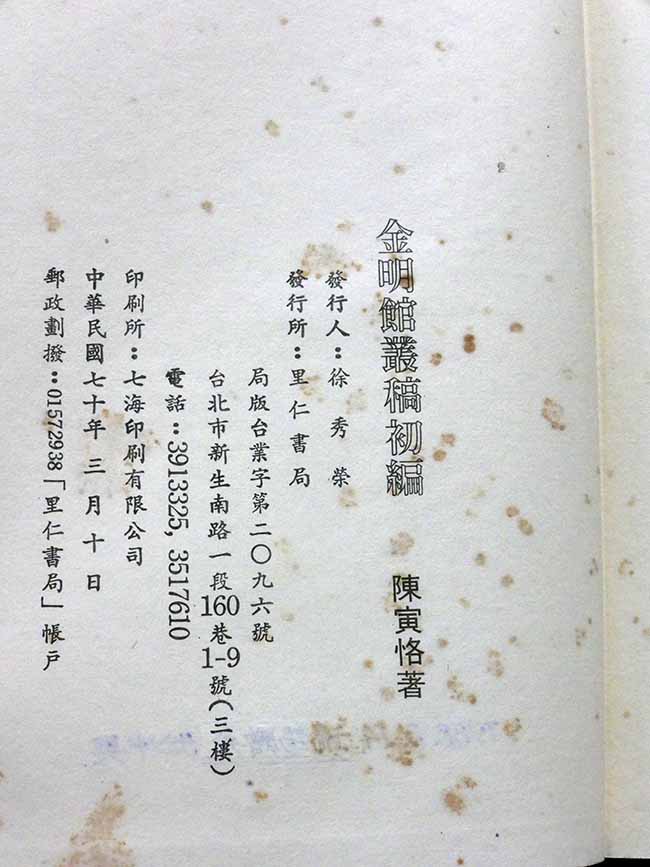 金明館叢稿初編 陳寅恪著
發行人：徐秀榮
發行所：里仁書局
局版台業字第二〇九六號
台北市新生南路一段160巷1-9號(三樓)
電話：3913325, 3517610
印刷所：七海印刷有限公司
中華民國七十年三月十日
郵政劃撥：01572938「里仁書局」帳戶